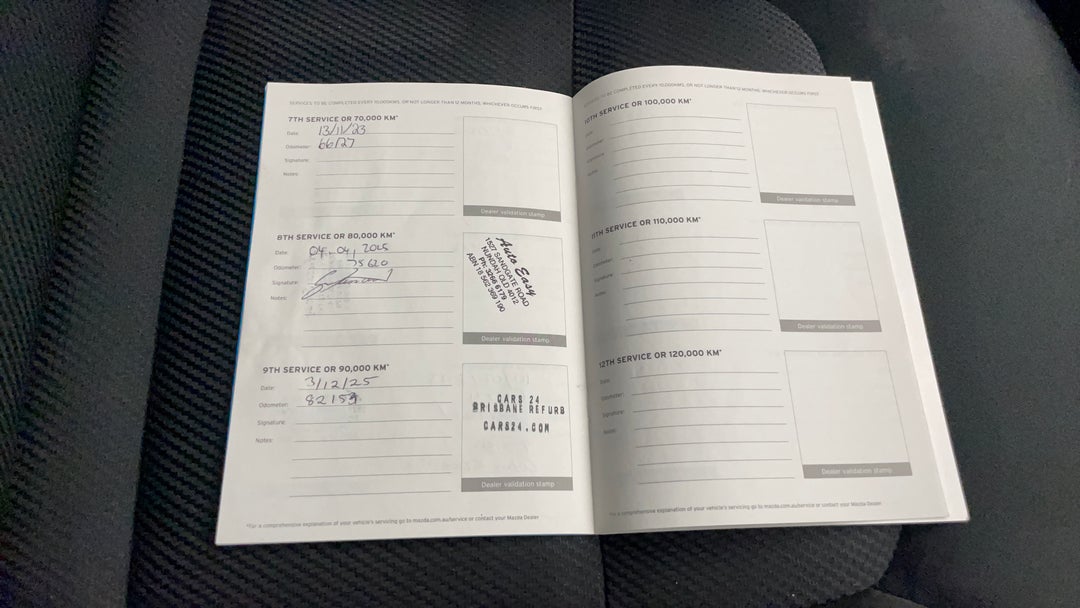 SERVICES TO BE COMPLETED EVERY 10,000KMS, OR NOT LONGER THAN 12 MONTHS, WHICHEVER OCCURS FIRST
7TH SERVICE OR 70,000 KM*
Date: 13/11/23
Odometer: 66127
Signature:
Notes:
Dealer validation stamp
8TH SERVICE OR 80,000 KM*
Date: 04-04, 2025
Odometer: 75620
Signature:
Notes:
Auto Easy
1527 SANDGATE ROAD
NUNDAH QLD 4012
Ph: 3266 6179
ABN 18 502 369 190
Dealer validation stamp
9TH SERVICE OR 90,000 KM*
Date: 3/12/25
Odometer: 82153
Signature:
Notes:
CARS 24
BRISBANE REFURB
CARS24.COM
Dealer validation stamp
*For a comprehensive explanation of your vehicle's servicing go to mazda.com.au/service or contact your Mazda Dealer
SERVICES TO BE COMPLETED EVERY 10,000KMS, OR NOT LONGER THAN 12 MONTHS, WHICHEVER OCCURS FIRST
10TH SERVICE OR 100,000 KM*
Date:
Odometer:
Signature:
Notes:
Dealer validation stamp
11TH SERVICE OR 110,000 KM*
Date:
Odometer:
Signature:
Notes:
Dealer validation stamp
12TH SERVICE OR 120,000 KM*
Date:
Odometer:
Signature:
Notes:
Dealer validation stamp
*For a comprehensive explanation of your vehicle's servicing go to mazda.com.au/service or contact your Mazda Dealer